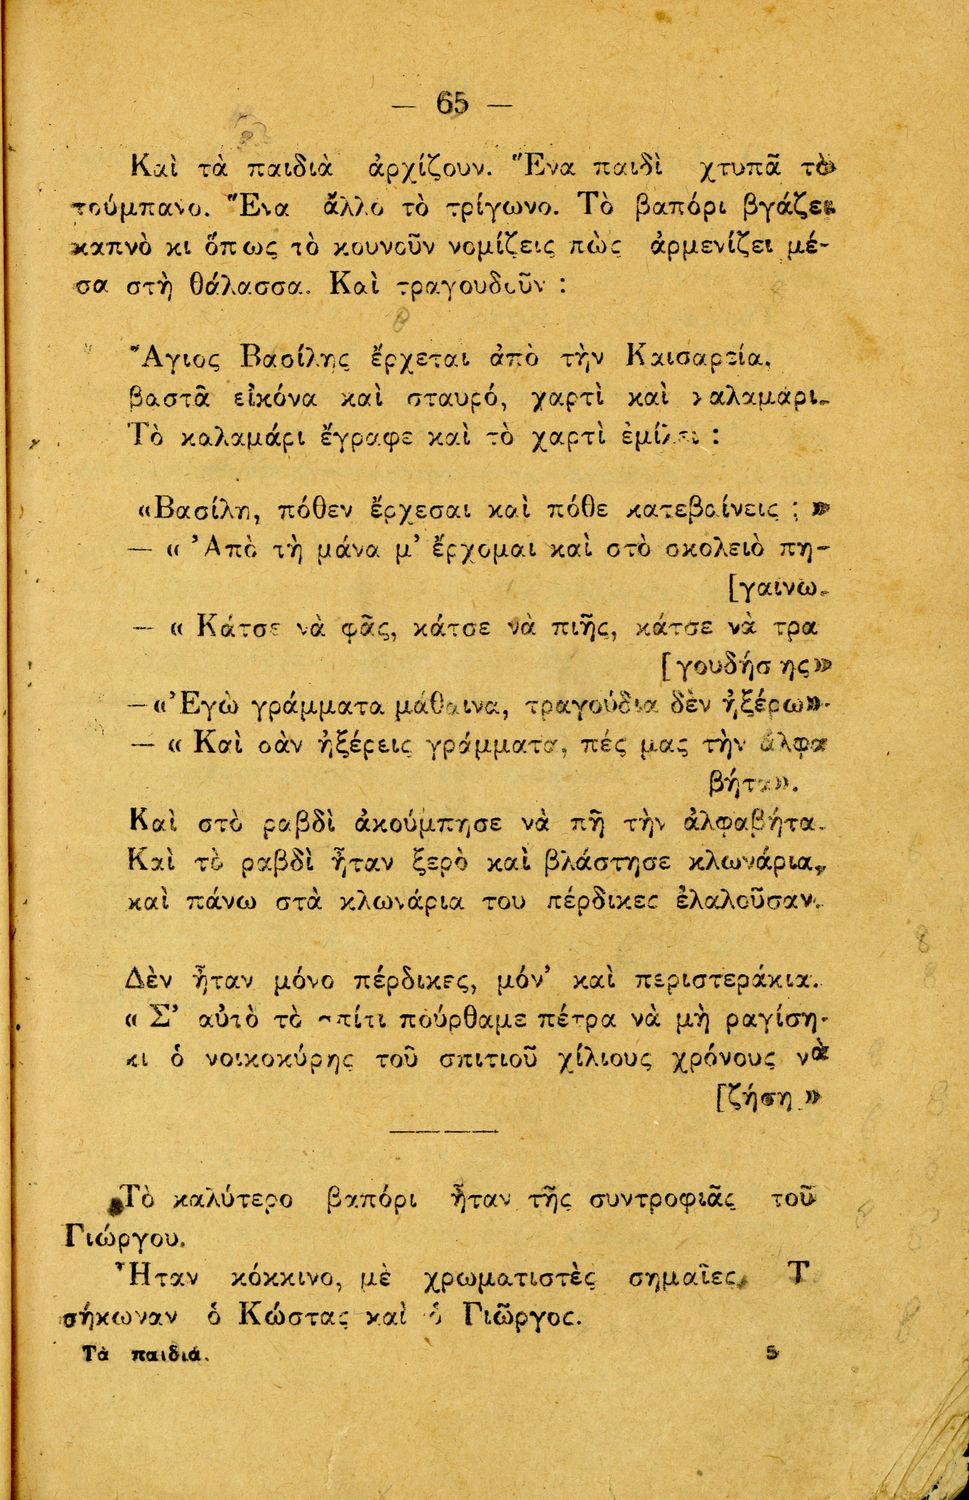 — 65 —
Καὶ τὰ παιδιὰ ἀρχίζουν. Ἕνα παιδὶ χτυπᾶ τὸ
τούμπανο. Ἕνα ἄλλο τὸ τρίγωνο. Τὸ βαπόρι βγάζει
καπνὸ κι ὅπως τὸ κουνοῦν νομίζεις πὼς ἀρμενίζει μέ-
σα στὴ θάλασσα. Καὶ τραγουδοῦν :
Ἅγιος Βασίλης ἔρχεται ἀπὸ τὴν Καισαρεία,
βαστᾶ εἰκόνα καὶ σταυρό, χαρτὶ καὶ καλαμάρι.
Τὸ καλαμάρι ἔγραφε καὶ τὸ χαρτὶ ἐμίλει :
«Βασίλη, πόθεν ἔρχεσαι καὶ πόθε κατεβαίνεις ; »
— « Ἀπὸ τὴ μάνα μ’ ἔρχομαι καὶ στὸ σκολειὸ πη-
[γαίνω.
— « Κάτσε νὰ φᾶς, κάτσε νὰ πιῆς, κάτσε νὰ τρα
[γουδήσ ης»
—«Ἐγὼ γράμματα μάθαινα, τραγούδια δὲν ἠξέρω».
— « Καὶ σὰν ἠξέρεις γράμματα, πές μας τὴν ἀλφα
βήτα».
Καὶ στὸ ραβδὶ ἀκούμπησε νὰ πῆ τὴν ἀλφαβήτα.
Καὶ τὸ ραβδὶ ἦταν ξερὸ καὶ βλάστησε κλωνάρια,
καὶ πάνω στὰ κλωνάρια του πέρδικες ἐλαλοῦσαν.
Δὲν ἦταν μόνο πέρδικες, μόν’ καὶ περιστεράκια.
« Σ’ αὐτὸ τὸ σπίτι πούρθαμε πέτρα νὰ μὴ ραγίση·
κι ὁ νοικοκύρης τοῦ σπιτιοῦ χίλιους χρόνους νὰ
[ζήση »
Τὸ καλύτερο βαπόρι ἦταν τῆς συντροφιᾶς τοῦ
Γιώργου.
Ἦταν κόκκινο, μὲ χρωματιστὲς σημαῖες. Τ
σήκωναν ὁ Κώστας καὶ ὁ Γιῶργος.
Τὰ παιδιά. 5